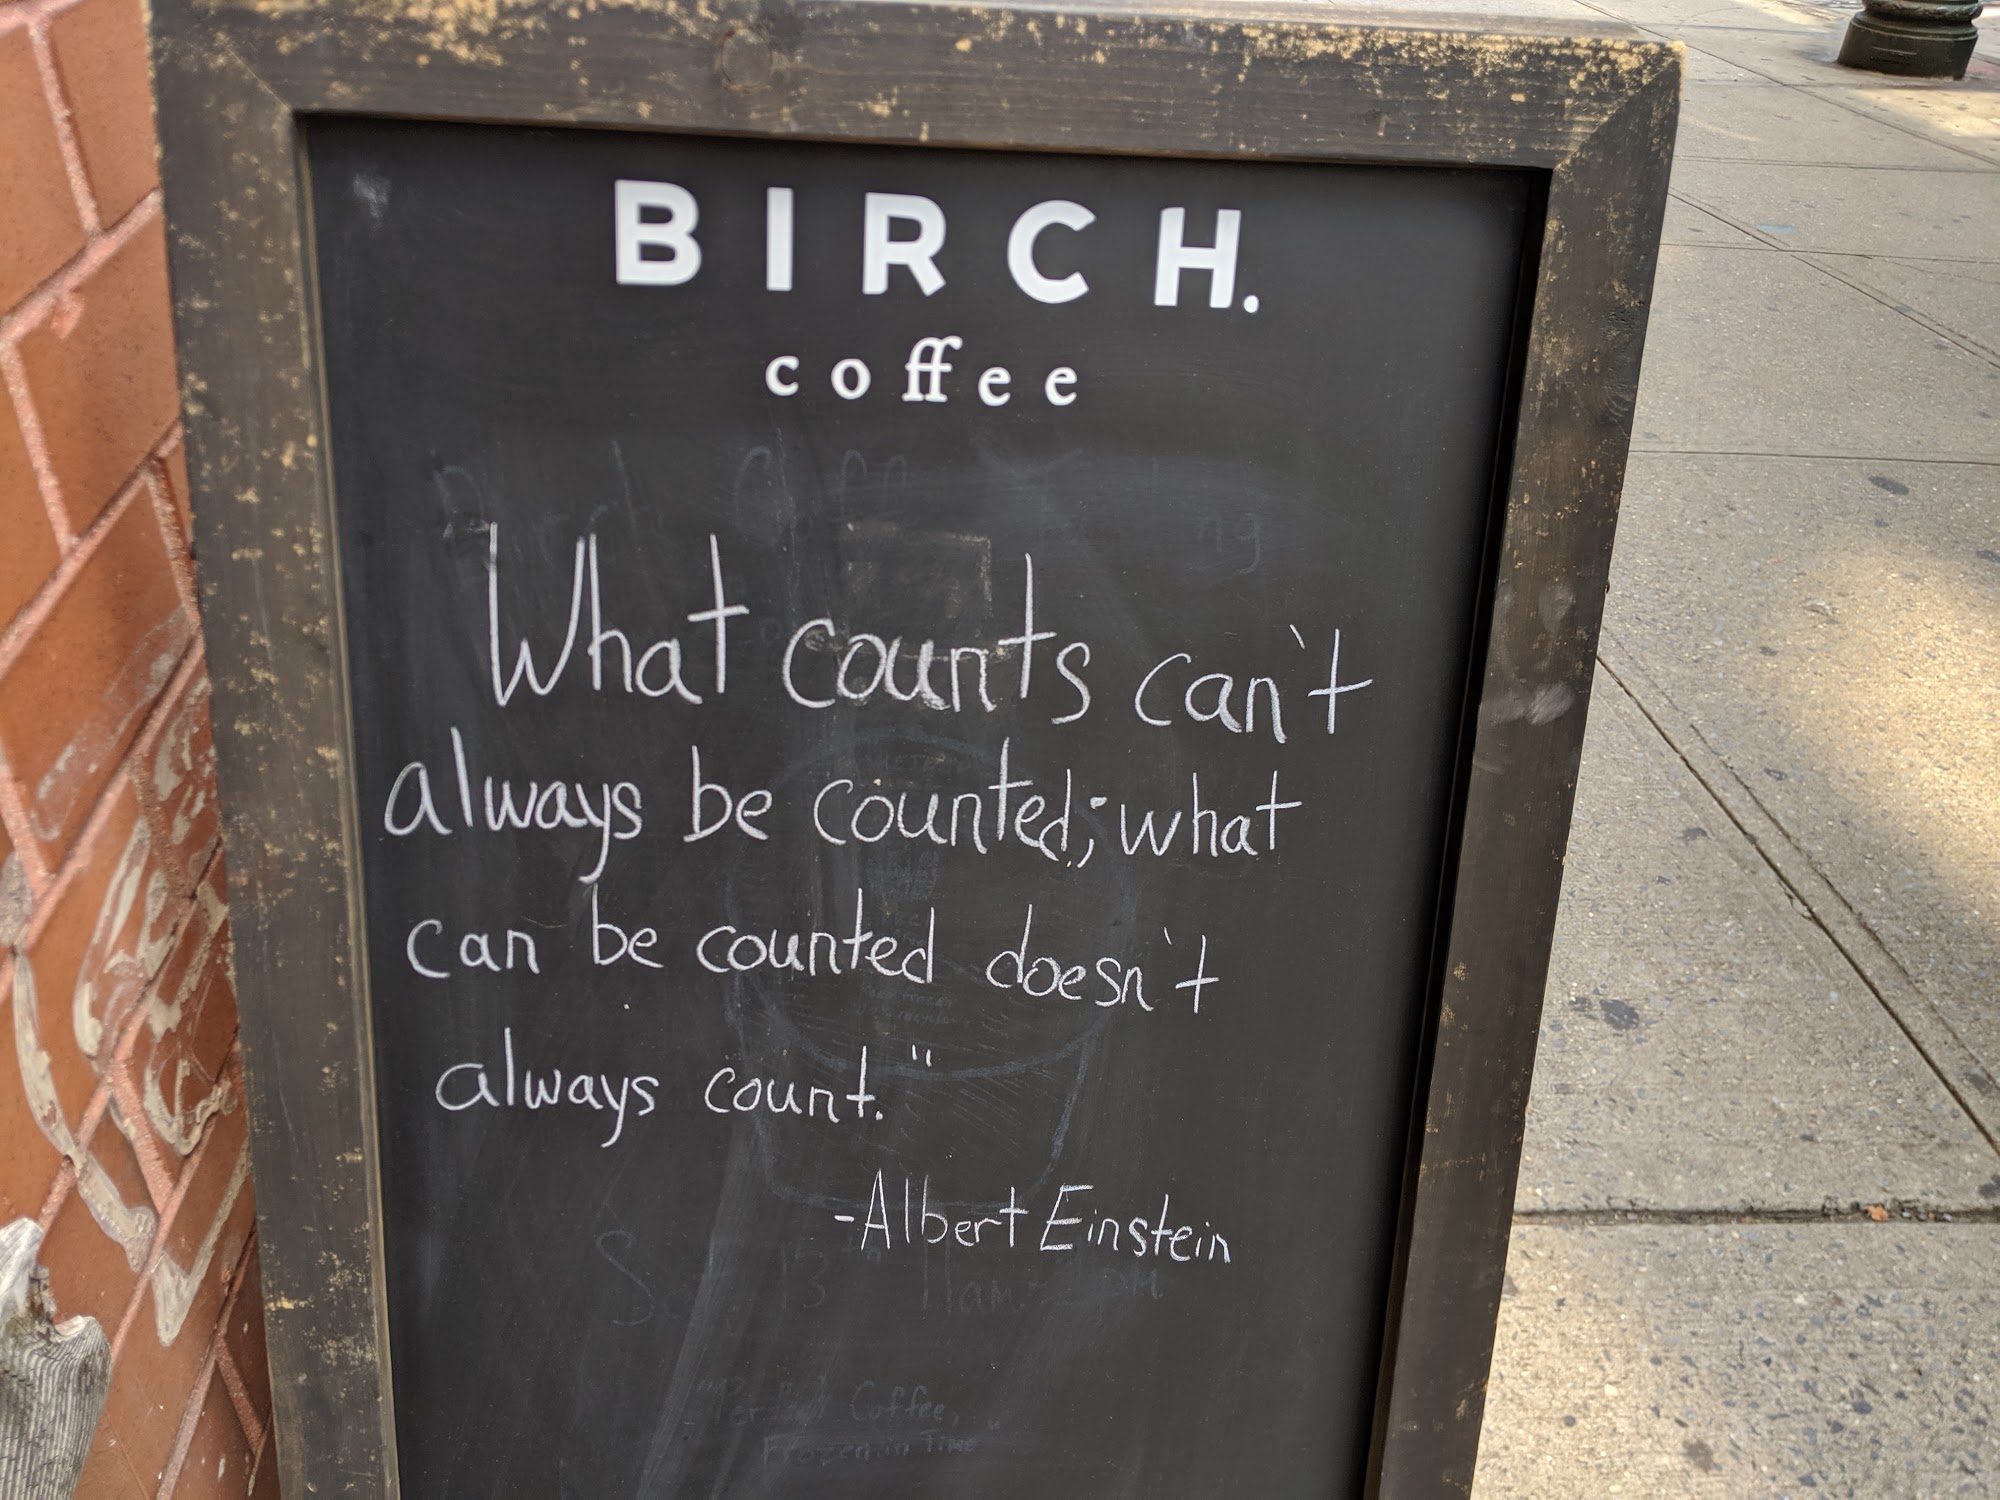 BIRCH.
coffee
What counts can't
always be counted; what
can be counted doesn't
always count."
-Albert Einstein
Coffee,
Frozen in Time"